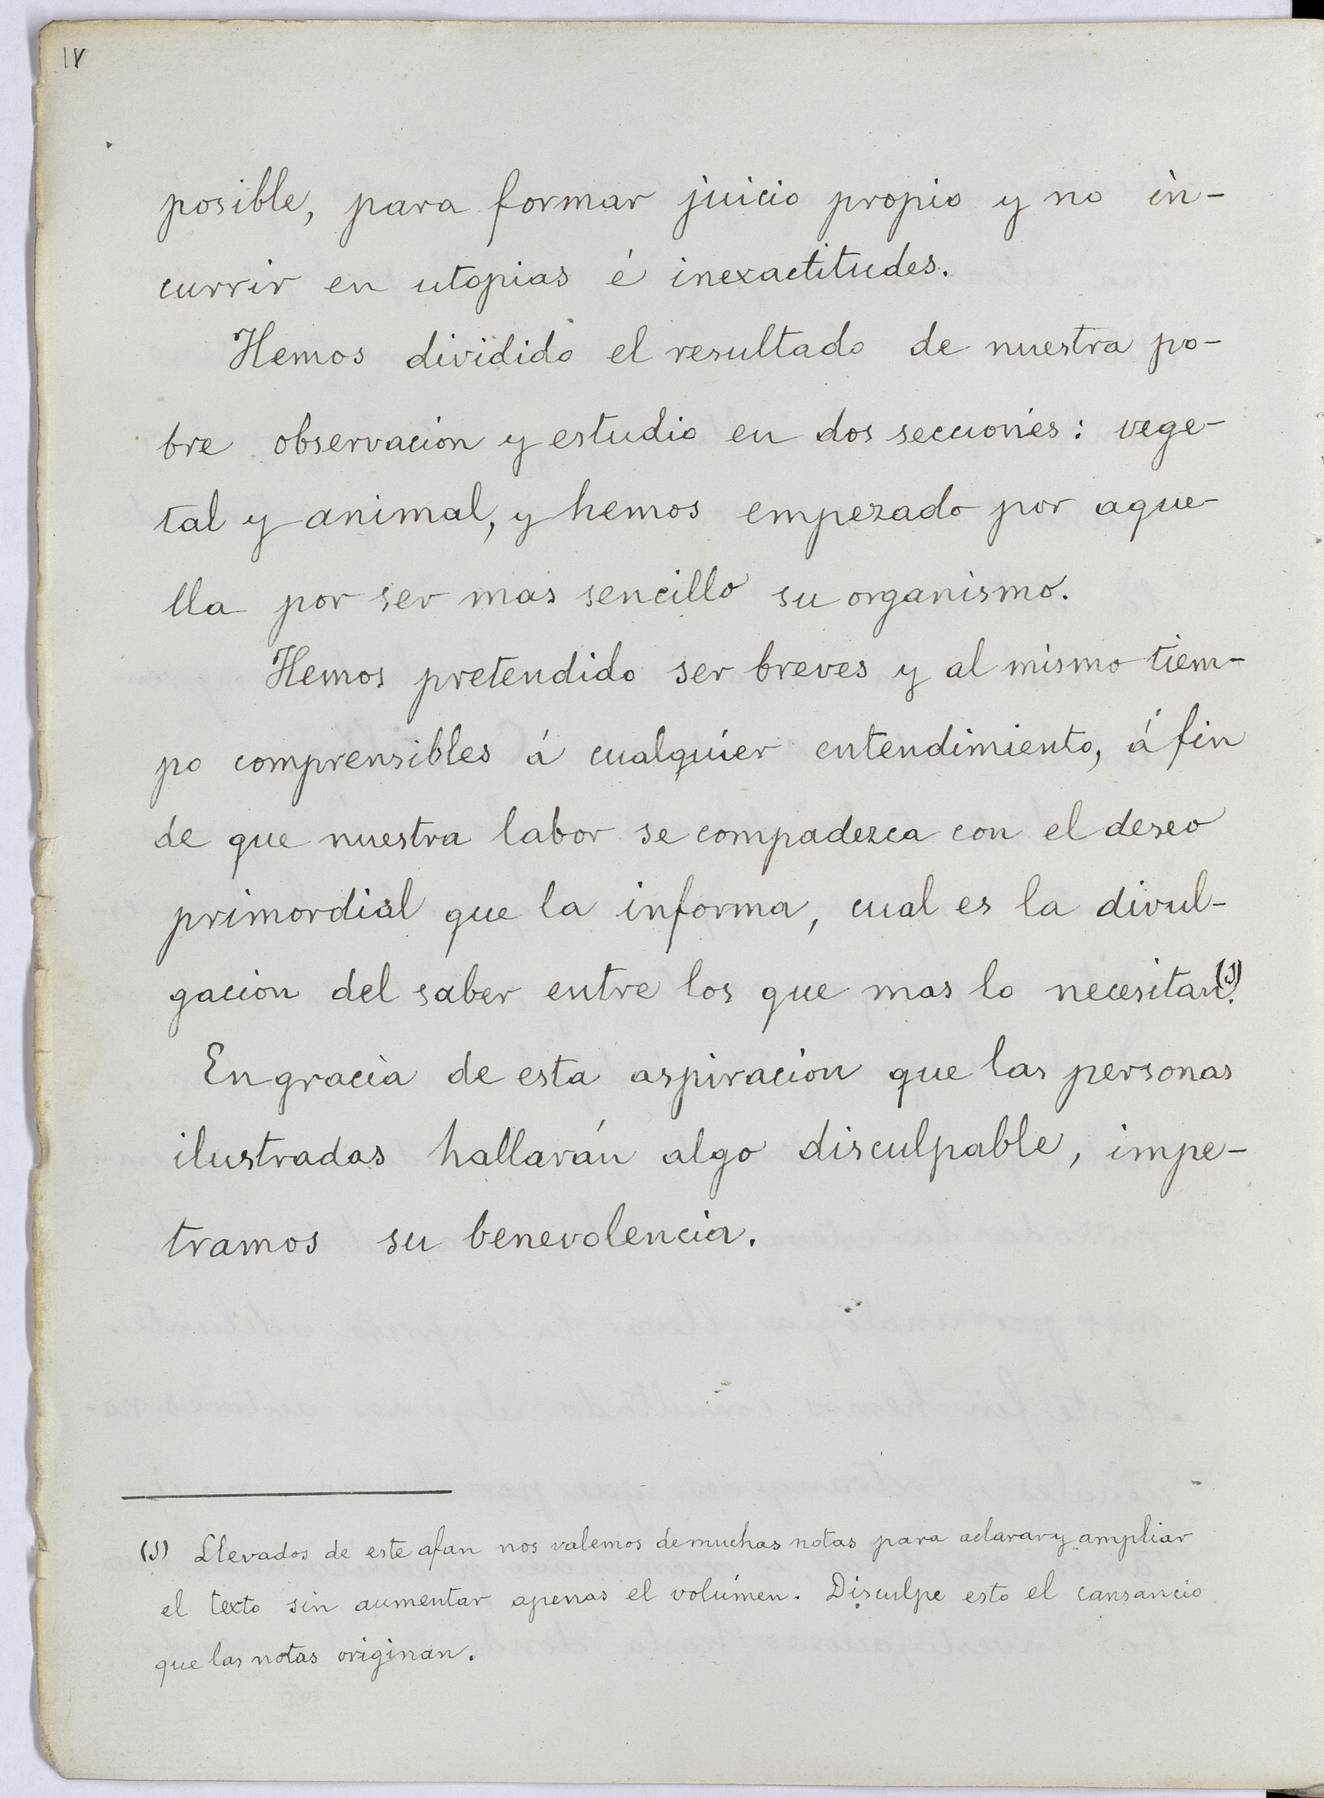 IV
posible, para formar juicio propio y no in-
currir en utopias é inexactitudes.
Hemos dividido el resultado de nuestra po-
bre observacion y estudio en dos secciones: vege-
tal y animal, y hemos empezado por aque-
lla por ser mas sencillo su organismo.
Hemos pretendido ser breves y al mismo tiem-
po comprensibles á cualquier entendimiento, á fin
de que nuestra labor se compadezca con el deseo
primordial que la informa, cual es la divul-
gacion del saber entre los que mas lo necesitan(1).
En gracia de esta aspiracion que las personas
ilustradas hallarán algo disculpable, impe-
tramos su benevolencia.
(1) Llevados de este afan nos valemos de muchas notas para aclarar y ampliar
el texto sin aumentar apenas el volúmen. Disculpe esto el cansancio
que las notas originan.